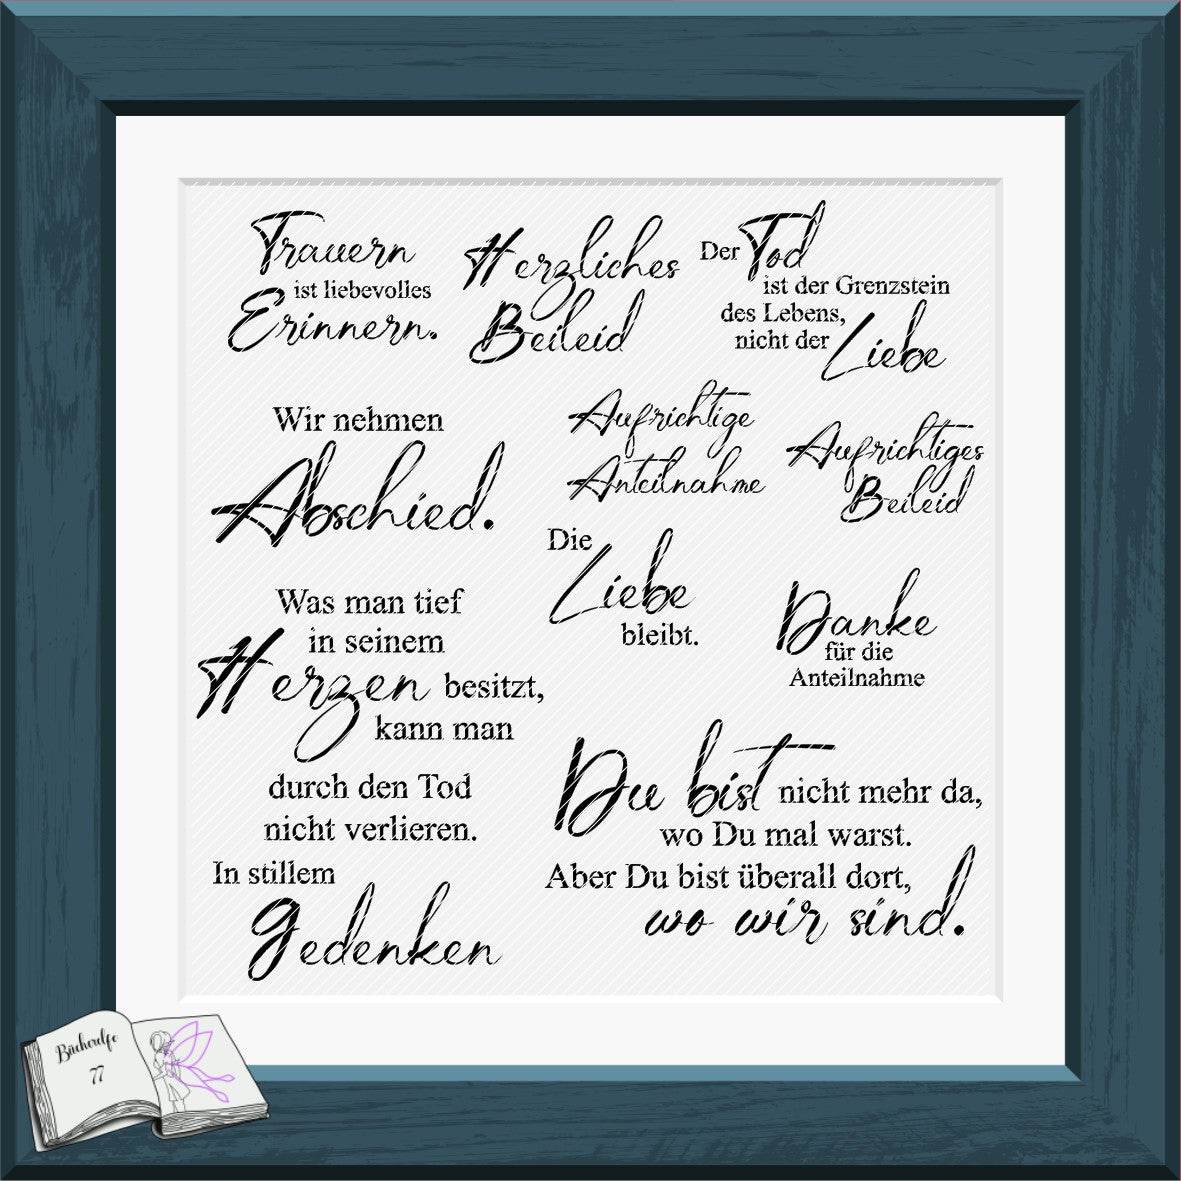 Trauern
ist liebevolles
Erinnern.
Herzliches
Beileid
Der Tod
ist der Grenzstein
des Lebens,
nicht der Liebe
Wir nehmen
Abschied.
Aufrichtige
Anteilnahme
Aufrichtiges
Beileid
Die
Liebe
bleibt.
Was man tief
in seinem
Herzen besitzt,
kann man
durch den Tod
nicht verlieren.
Danke
für die
Anteilnahme
Du bist nicht mehr da,
wo Du mal warst.
Aber Du bist überall dort,
wo wir sind.
In stillem
Gedenken
Bücherelfe
77